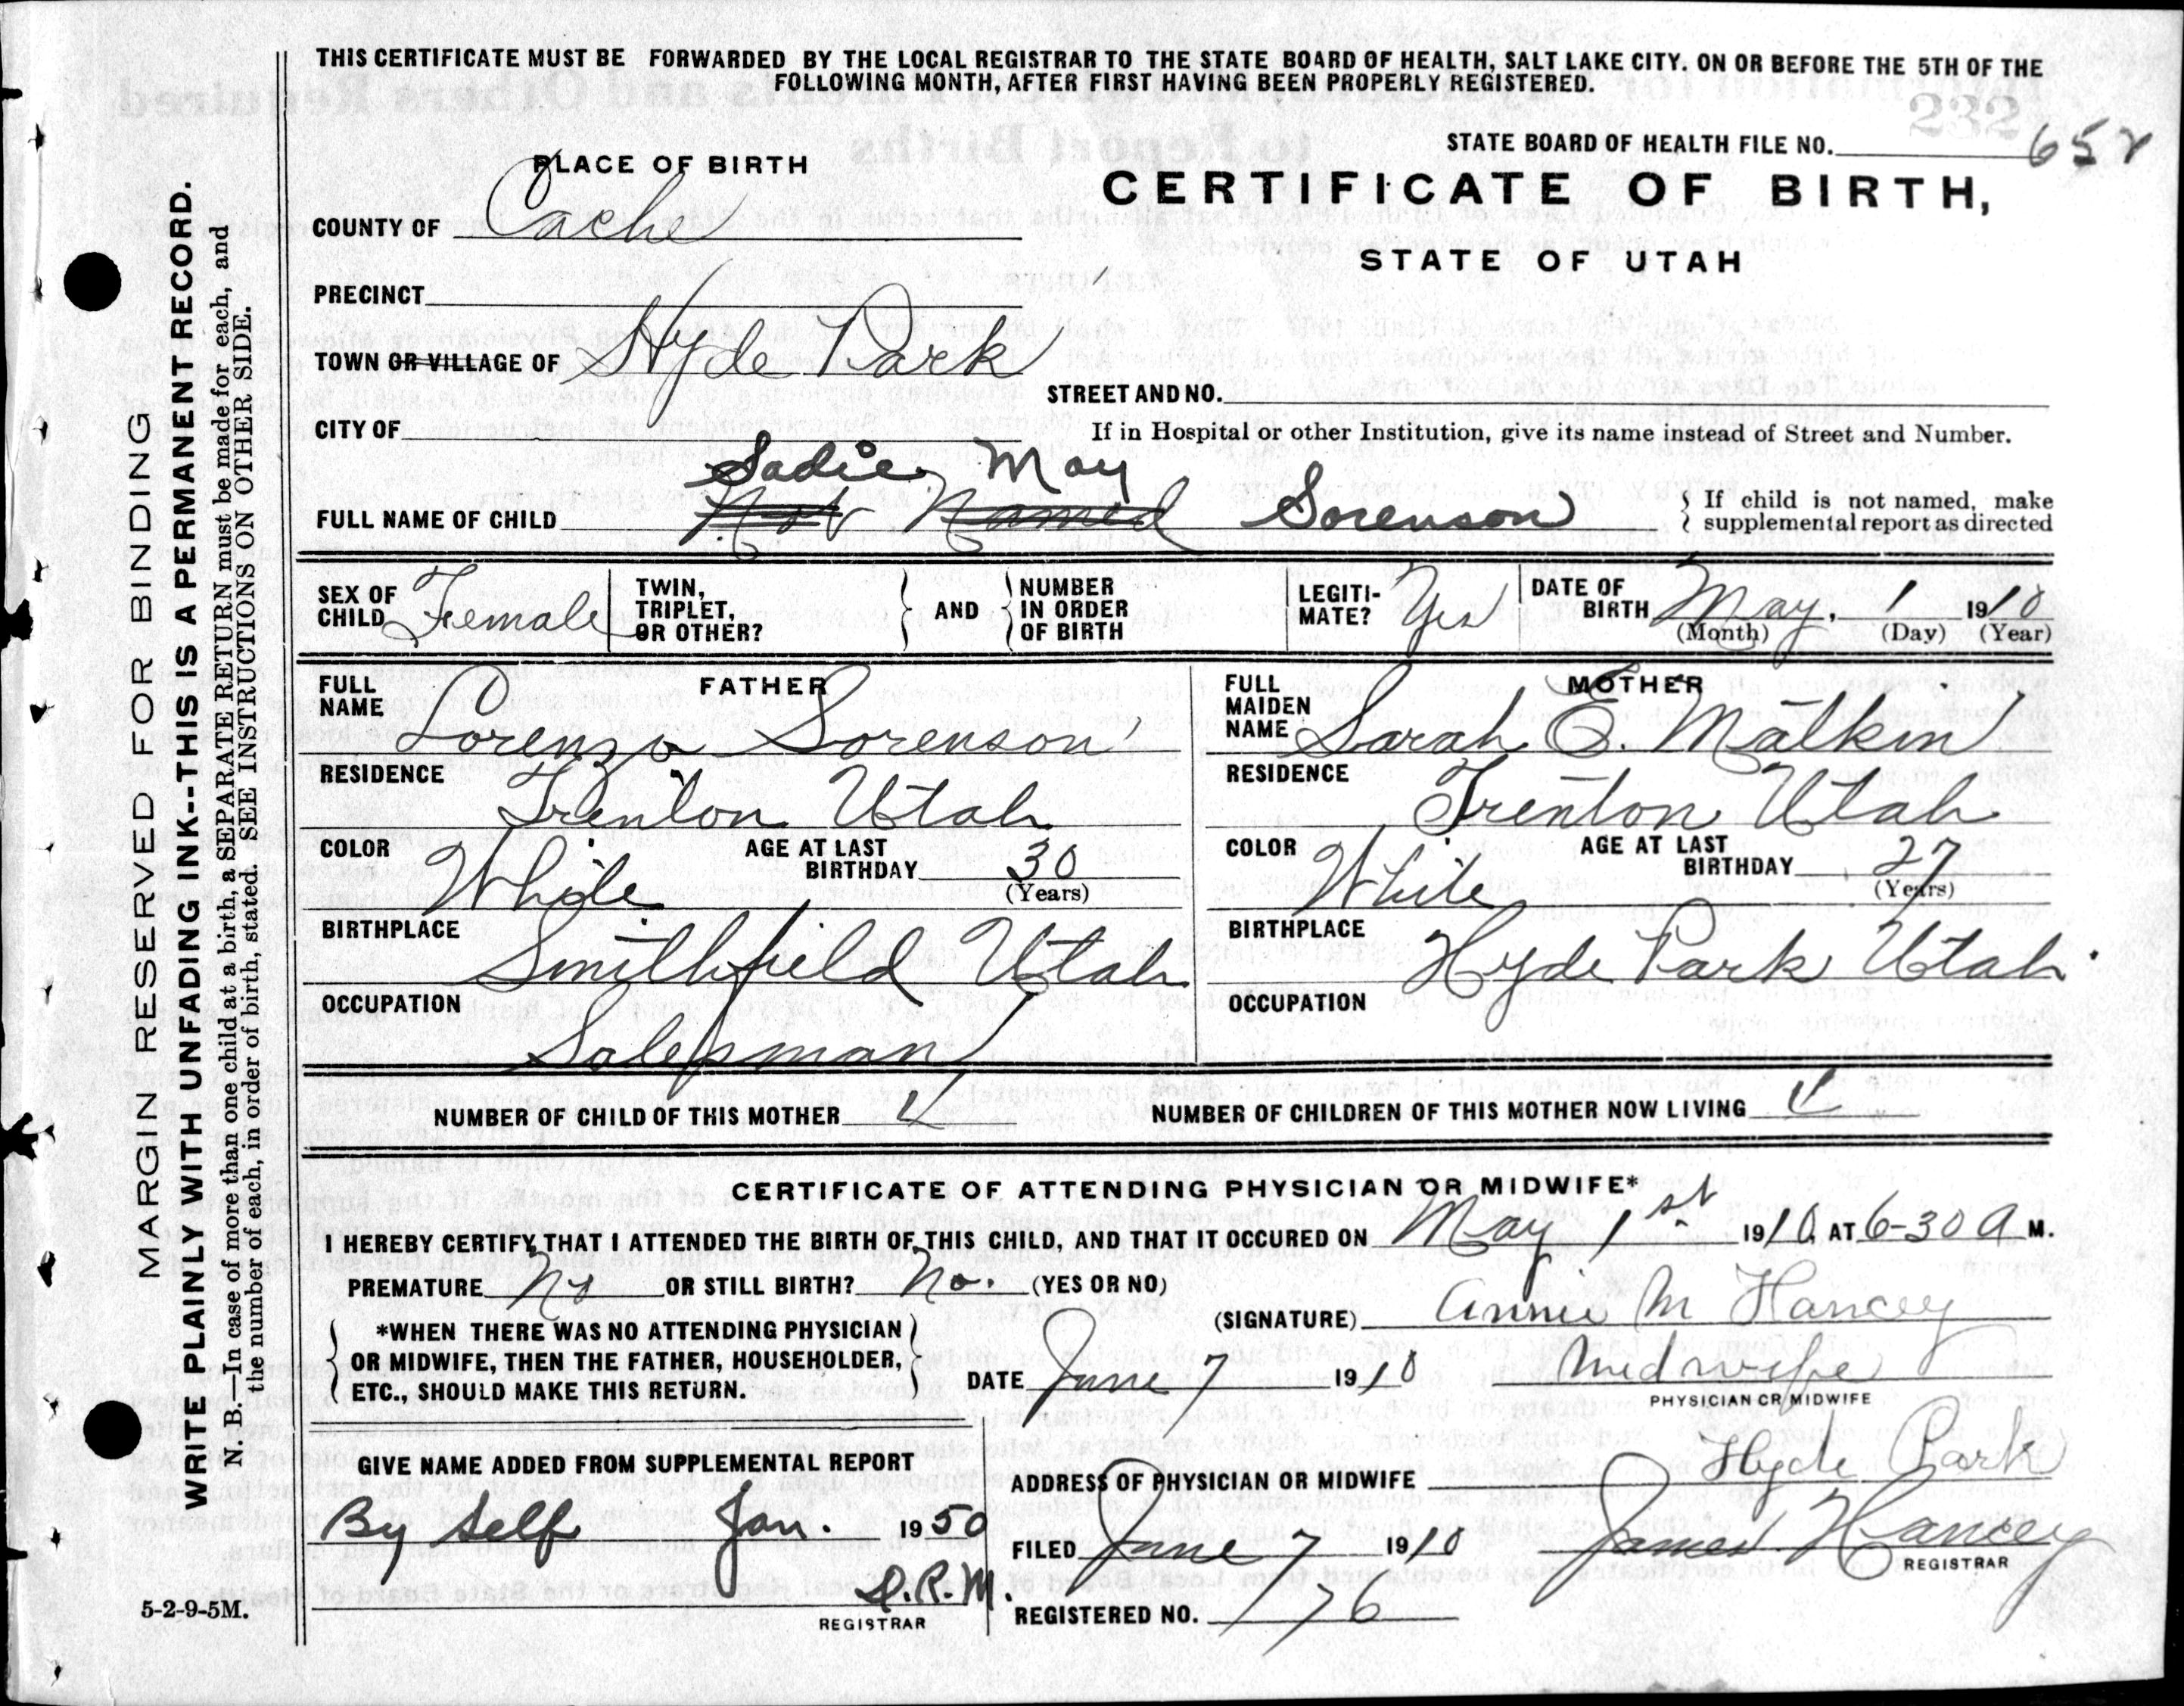 THIS CERTIFICATE MUST BE FORWARDED BY THE LOCAL REGISTRAR TO THE STATE BOARD OF HEALTH, SALT LAKE CITY. ON OR BEFORE THE 5TH OF THE
FOLLOWING MONTH, AFTER FIRST HAVING BEEN PROPERLY REGISTERED.
232
STATE BOARD OF HEALTH FILE NO. 652
PLACE OF BIRTH
CERTIFICATE OF BIRTH,
COUNTY OF Cache
STATE OF UTAH
PRECINCT
TOWN OR VILLAGE OF Hyde Park
STREET AND NO.
CITY OF
If in Hospital or other Institution, give its name instead of Street and Number.
Sadie May
FULL NAME OF CHILD Not Named Sorenson
If child is not named, make
supplemental report as directed
SEX OF CHILD Female
TWIN, TRIPLET, OR OTHER?
AND
NUMBER IN ORDER OF BIRTH
LEGITI-MATE? Yes
DATE OF BIRTH May, 1 1910
(Month) (Day) (Year)
FATHER
FULL NAME Lorenzo Sorenson
RESIDENCE
Trenton Utah
COLOR White
AGE AT LAST BIRTHDAY 30
(Years)
BIRTHPLACE
Smithfield Utah
OCCUPATION
Salesman
MOTHER
FULL MAIDEN NAME Sarah E. Matkin
RESIDENCE
Trenton Utah
COLOR White
AGE AT LAST BIRTHDAY 27
(Years)
BIRTHPLACE
Hyde Park Utah.
OCCUPATION
NUMBER OF CHILD OF THIS MOTHER 4
NUMBER OF CHILDREN OF THIS MOTHER NOW LIVING 4
CERTIFICATE OF ATTENDING PHYSICIAN OR MIDWIFE*
I HEREBY CERTIFY THAT I ATTENDED THE BIRTH OF THIS CHILD, AND THAT IT OCCURED ON May 1st 1910, AT 6-30 A M.
PREMATURE No OR STILL BIRTH? No. (YES OR NO)
(SIGNATURE) Annie M Hancey
*WHEN THERE WAS NO ATTENDING PHYSICIAN
OR MIDWIFE, THEN THE FATHER, HOUSEHOLDER,
ETC., SHOULD MAKE THIS RETURN.
DATE June 7 1910
Midwife
PHYSICIAN OR MIDWIFE
GIVE NAME ADDED FROM SUPPLEMENTAL REPORT
By self Jan. 1950
D.R.M.
REGISTRAR
ADDRESS OF PHYSICIAN OR MIDWIFE Hyde Park
FILED June 7 1910 James Hancey
REGISTRAR
REGISTERED NO. 176
MARGIN RESERVED FOR BINDING
WRITE PLAINLY WITH UNFADING INK--THIS IS A PERMANENT RECORD.
N. B.—In case of more than one child at a birth, a SEPARATE RETURN must be made for each, and
the number of each, in order of birth, stated. SEE INSTRUCTIONS ON OTHER SIDE.
5-2-9-5M.